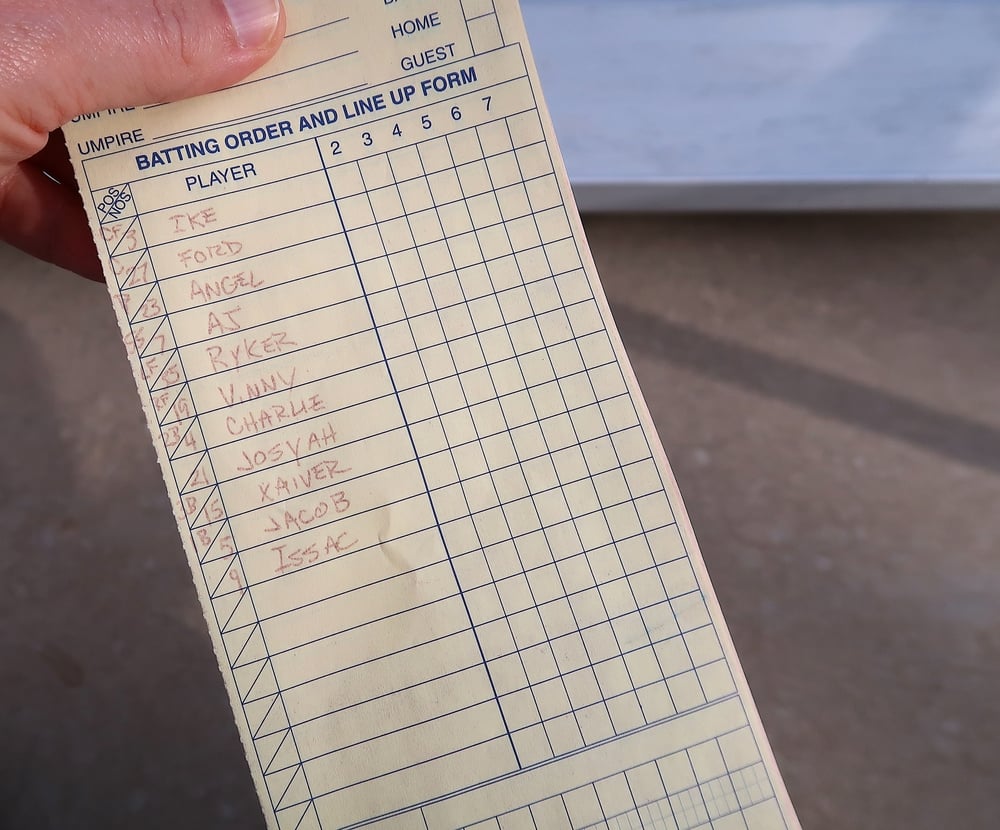 HOME
GUEST
UMPIRE
UMPIRE
BATTING ORDER AND LINE UP FORM
POS NOS PLAYER 2 3 4 5 6 7
CF 3 IKE
27 FORD
23 ANGEL
7 AJ
25 RYKER
RF 19 VINNY
2B 4 CHARLIE
21 JOSYAH
B 15 XAIVER
B 5 JACOB
9 ISSAC